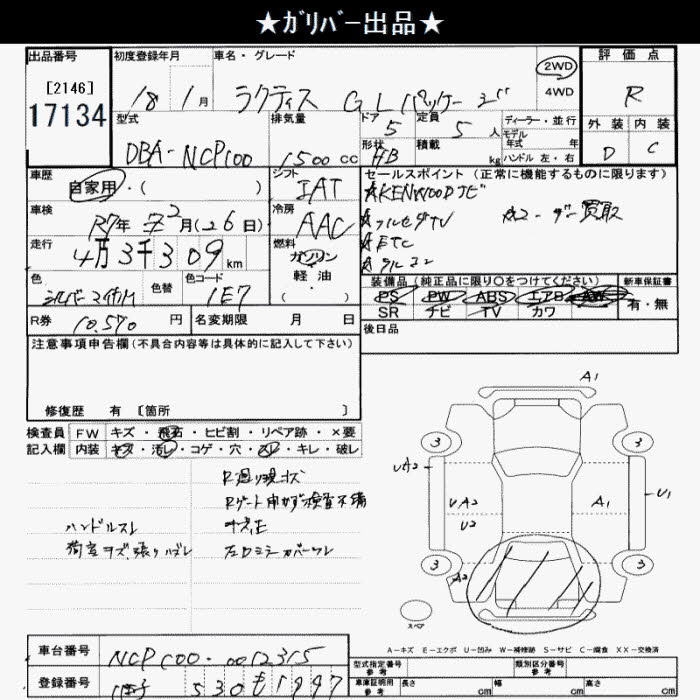 ★ｶﾞﾘﾊﾞｰ出品★
出品番号 初度登録年月 車名・グレード 評価点
[2146] 18 1月 ラクティス GLパッケージ 2WD 4WD R
17134
型式 排気量 ドア 定員 ディーラー・並行 外装 内装
DBA-NCP100 1500cc 5 5人 モデル年式 年 D C
形状 HB 積載 kg ハンドル 左・右
車歴 シフト セールスポイント(正常に機能するものに限ります)
自家用・( ) IAT ☆KENWOODナビ
車検 冷房 ☆フルセグTV ☆ユーザー買取
R7年 2月(26日) AAC ☆ETC
走行 燃料
4万3千309km ガソリン・軽油・( )
色 色替 色コード 装備品(純正品に限り○をつけてください) 新車保証書
シルバーマイカM 1E7 PS PW ABS エアB AW 有・無
SR ナビ TV カワ
R券 10,570円 名変期限 月 日 後日品
注意事項申告欄(不具合内容等は具体的に記入して下さい)
修復歴 有 [箇所 ]
検査員 FW キズ・飛石・ヒビ割・リペア跡・×要
記入欄 内装 キズ・汚レ・コゲ・穴・スレ・キレ・破レ
R廻り現状
Rゲート開かず検査不備
ハンドルスレ
荷室キズ、張りハズレ 左ドミラーカバーワレ
A1
3 3
UA2 UA2 U2 A1 U1
3 3
A2
スペア
A-キズ E-エクボ U-凹み W-補修跡 S-サビ C-腐食 XX-交換済
車台番号 NCP100-0012315
型式指定番号 参考 類別区分番号 参考
登録番号 530も1997
車庫証明用 参考 長さ cm 幅 cm 高さ cm